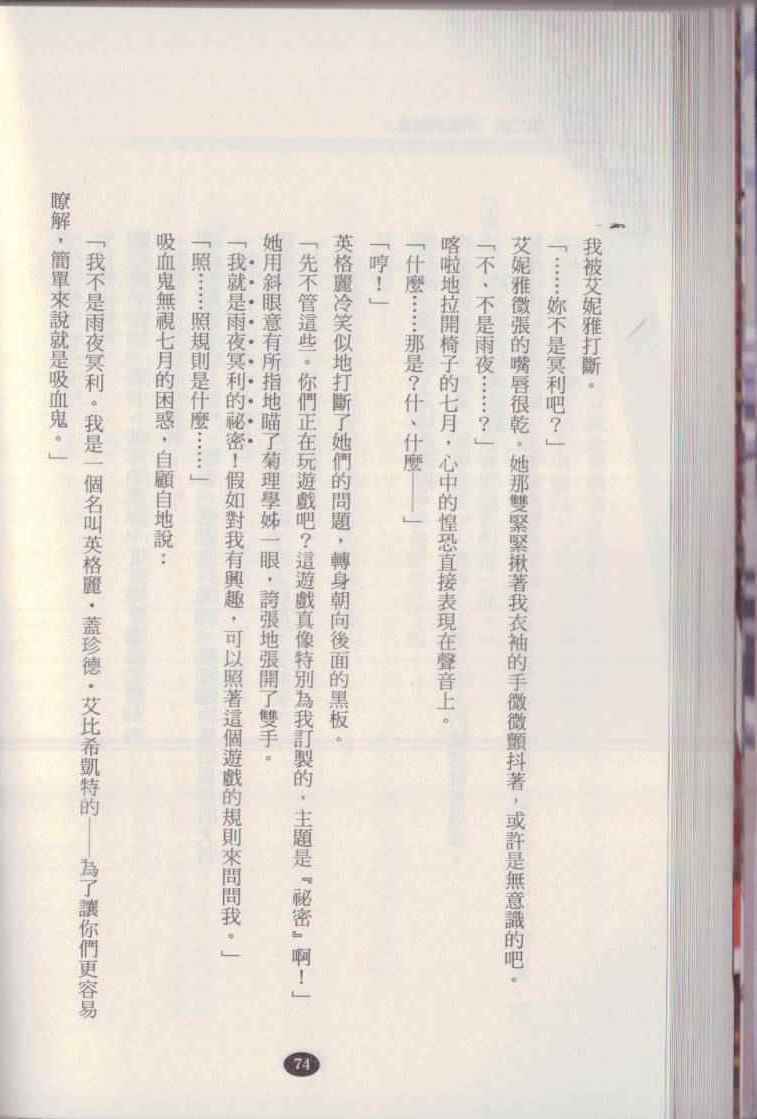 我被艾妮雅打斷。
「……妳不是冥利吧？」
艾妮雅微張的嘴唇很乾。她那雙緊緊揪著我衣袖的手微微顫抖著，或許是無意識的吧。
「不、不是雨夜……？」
喀啦地拉開椅子的七月，心中的惶恐直接表現在聲音上。
「什麼……那是？什、什麼——」
「哼！」
英格麗冷笑似地打斷了她們的問題，轉身朝向後面的黑板。
「先不管這些。你們正在玩遊戲吧？這遊戲真像特別為我訂製的，主題是『祕密』啊！」
她用斜眼意有所指地瞄了菊理學姊一眼，誇張地張開了雙手。
「我就是雨夜冥利的祕密！假如對我有興趣，可以照著這個遊戲的規則來問問我。」
「照……照規則是什麼……」
吸血鬼無視七月的困惑，自顧自地說：
「我不是雨夜冥利。我是一個名叫英格麗‧蓋珍德‧艾比希凱特的——為了讓你們更容易
瞭解，簡單來說就是吸血鬼。」
74